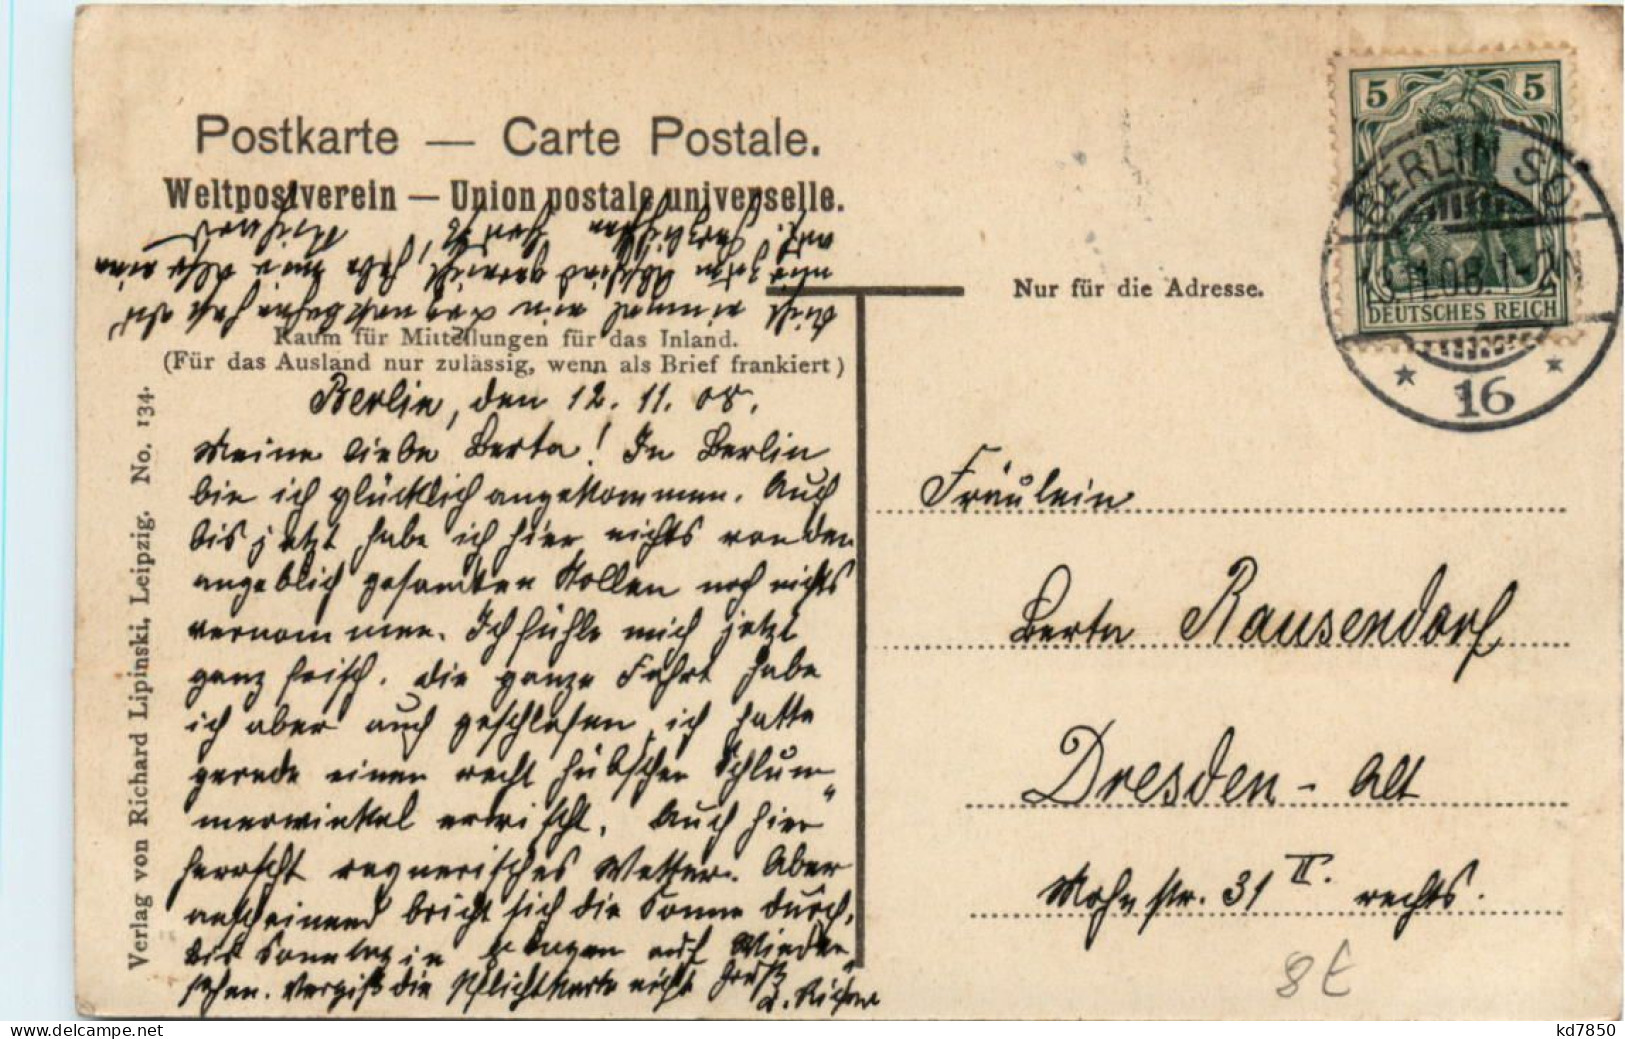 Postkarte — Carte Postale.
Weltpostverein — Union postale universelle.
Raum für Mitteilungen für das Inland.
(Für das Ausland nur zulässig, wenn als Brief frankiert)
Berlin, den 12. 11. 08.
Meine liebe Berta! In Berlin
bin ich glücklich angekommen. Auch
bis jetzt habe ich hier nichts von den
angeblich gesamten Kollen noch nichts
vernommen. Ich fühle mich jetzt
ganz frisch. Die ganze Fahrt habe
ich aber auch geschlafen, ich hatte
gerade einen recht hübschen Schlum„
merwinkel erwischt. Auch hier
herrscht regnerisches Wetter. Aber
anscheinend bricht sich die Sonne durch.
Bis Sonntag in auf Wieder„
sehen. Vergiß die Pflichtkarte nicht Gruß
Verlag von Richard Lipinski, Leipzig. No. 134.
Nur für die Adresse.
5 5
DEUTSCHES REICH
BERLIN SO
13.11.08.1-2
* 16 *
Fräulein
Berta Rausendorf
Dresden - Alt
Mohnstr. 31 II. rechts.
8t
kd7850